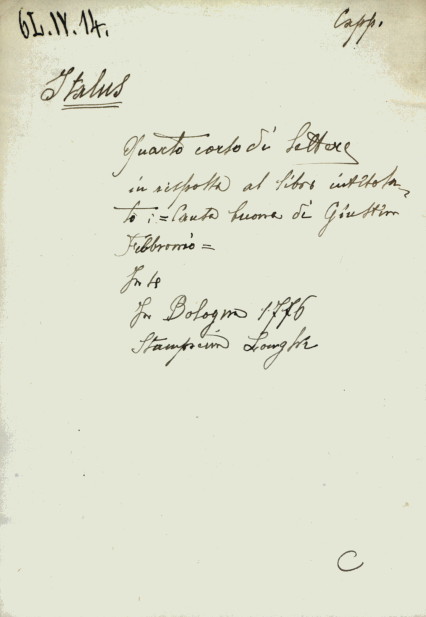 6L.IV.14.
Capp.
Italus
Quarto corso di Lettere
in risposta al libro intitola-
to := Causa buona di Giustin
Febbronio =
In 4
In Bologna 1776
Stamperia Longhi
C